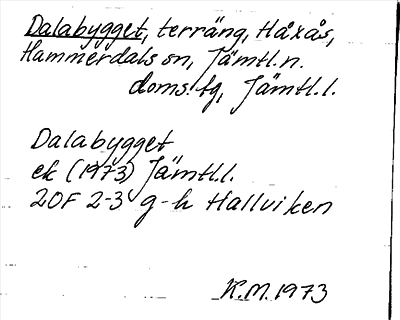 Dalabygget, terräng, Håxås,
Hammerdals sn, Jämtl.n.
doms. tg, Jämtl.l.
Dalabygget
ek (1973) Jämtl.l.
20F 2-3 g-h Hallviken
K.M. 1973